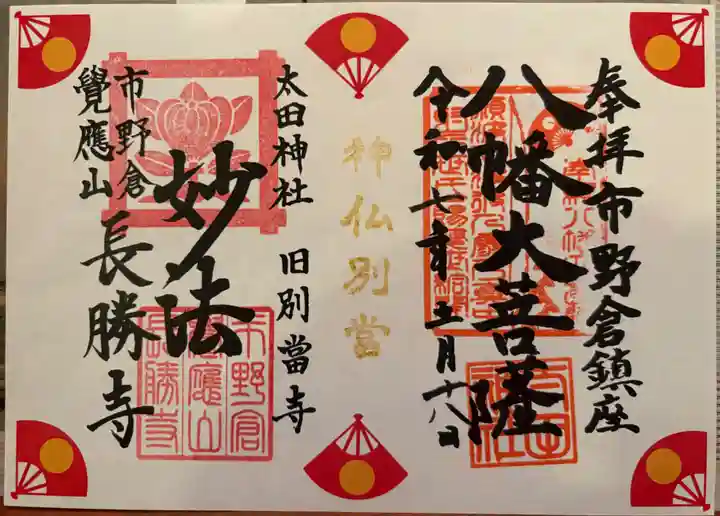 奉拝市野倉鎮座
八幡大菩薩
令和七年
月十八日
神仏別當
太田神社
旧別當寺
妙法
市野倉
覺應山
長勝寺
市野倉
覺應山
長勝寺